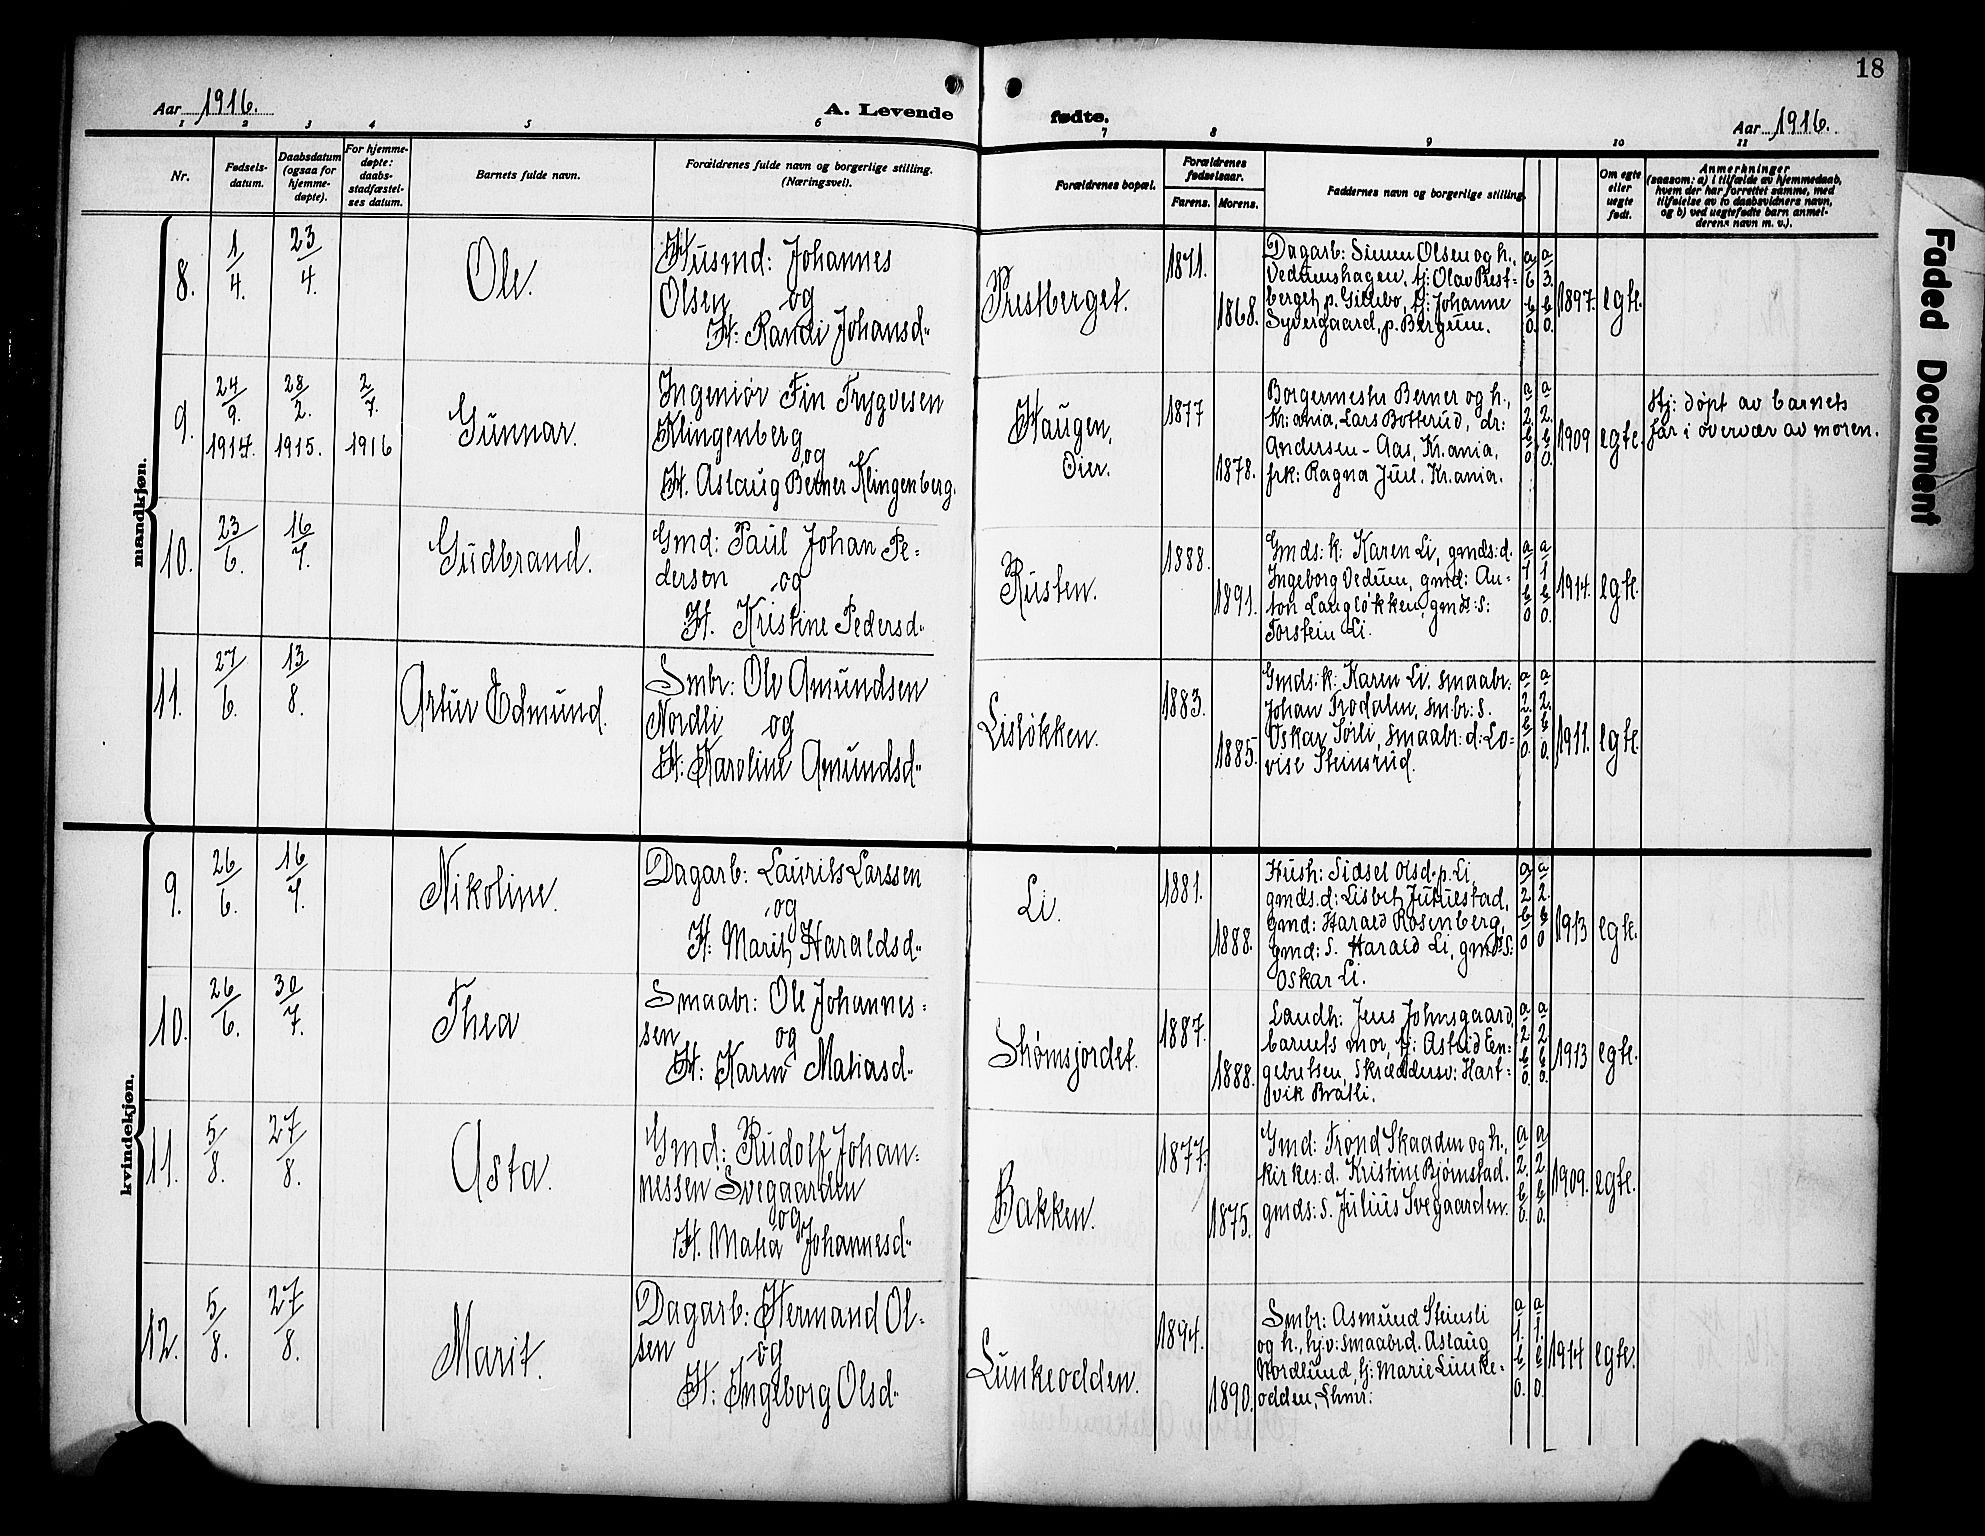 18
Aar 1916.
A. Levende
fødte.
Aar 1916.
1 2 3 4 5 6 7 8 9 10 11
Nr.
Fødsels-
datum.
Daabsdatum
(ogsaa for
hjemme-
døpte).
For hjemme-
døpte:
daabs-
stadfæstel-
ses datum.
Barnets fulde navn.
Forældrenes fulde navn og borgerlige stilling.
(Næringsvei).
Forældrenes bopæl.
Forældrenes
fødselsaar.
Farens. Morens.
Faddernes navn og borgerlige stilling.
Om egte
eller
uegte
født.
Anmerkninger
(saasom: a) i tilfælde av hjemmedaab,
hvem der har forrettet samme, med
tilføielse av to daabsvidners navn,
og b) ved uegtefødte barn anmel-
derens navn m. v.).
mandkjøn.
8.
1/4.
23/4.
Ole.
Husmd: Johannes
Olsen og
H: Randi Johansd.
Prestberget.
1871.
1868.
Dagarb: Simen Olsen og h.,
Vedumshagen, tj: Olav Prest-
berget, p. Gillebo, tj: Johanne
Syvergaard, p. Bergum.
a 6 b 0.
a 3. b 0.
1897.
egte.
9.
24/9. 1914.
28/2. 1915.
2/7. 1916
Gunnar.
Ingeniør Fin Trygvesen
Klingenberg
og
H. Aslaug Berner Klingenberg.
Haugen,
Øier.
1877
1878.
Borgermester Berner og h.,
Kr.ania, Lars Botterud, dr:
Andersen-Aas, Kr.ania,
frk: Ragna Juul, Kr.ania.
a 2. b 0
a 2. b 0.
1909
egte.
Hj: døpt av barnets
far i overvær av moren.
10.
23/6.
16/7.
Gudbrand.
Gmd: Paul Johan Pe-
dersen og
H. Kristine Pedersd.
Rusten.
1888.
1891.
Gmds: k: Karen Li, gmds: d.
Ingeborg Vedum, gmd: An-
ton Laugløkken, gmds: s:
Torstein Li.
a 1 b 0
a 1 b 0.
1914.
egte.
11.
27/6.
13/8.
Artur Edmund.
Smbr: Ole Amundsen
Nordli og
H: Karoline Amundsd.
Lisløkken.
1883.
1885.
Gmds: k: Karen Li, smaabr:
Johan Trodalen, smbr: s.
Oskar Sørli, smaabr: d: Lo-
vise Steinsrud.
a 2. b 0.
a 2. b 0.
1911.
egte.
kvindekjøn.
9.
26/6.
16/7.
Nikoline.
Dagarb: Laurits Larssen
og
H: Marit Haraldsd.
Li.
1881.
1888.
Hush: Sidsel Olsd. p. Li,
gmds. d: Lisbet Jukuestad,
gmd: Harald Rosenberg,
gmd: s. Harald Li, gmds: s:
Oskar Li.
a 2 b 0
a 2. b 0
1913
egte.
10.
26/6.
30/7.
Thea
Smaabr: Ole Johannes-
sen og
H: Karen Matiasd.
Strømsjordet.
1887.
1888.
Landh: Jens Johnsgaard,
barnets mor, tj: Astrid En-
gebretsen, Skrædders: Hart-
vik Bråtli.
a 2 b 0.
a 2 b 0.
1913
egte.
11.
5/8.
27/8.
Asta.
Gmd: Rudolf Johan-
nessen Svegaarden
og
H. Matea Johannesd.
Bakken.
1877.
1875.
Gmd: Trond Skaaden og h.,
kirkes: d. Kristine Bjørnstad.
gmds: s. Julius Svegaarden.
a 2. b 0.
a 2 b 0.
1909.
egte.
12.
5/8.
27/8.
Marit.
Dagarb: Hermand Ol-
sen og
H: Ingeborg Olsd.
Lunkeodden.
1894.
1890.
Smbr: Asmund Steinsli
og h., hj.v: smaabrd. Aslaug
Nordlund, tj: Marie Lunke-
odden,
a 1. b 0.
a 1. b 0.
1914
egte.
Faded Document